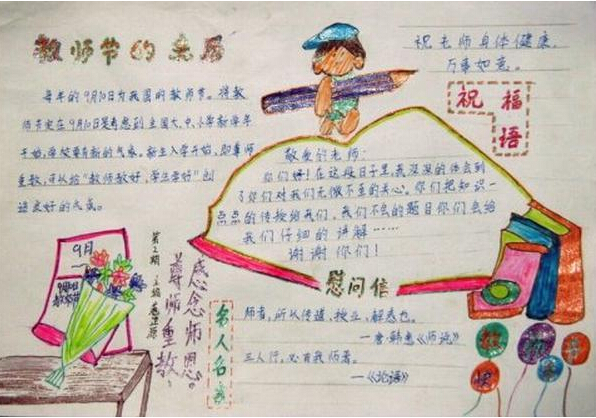 教师节的来历
每年的9月10日为我国的教师节。将教
师节定在9月10日是考虑到全国大、中、小学新学年
开始,学校要有新的气象,新生入学开始,即尊师
重教,可以给“教师教好,学生学好”创
造良好的气氛。
祝老师身体健康,
万事如意。
祝福
语
敬爱的老师:
你们好!在这段日子里,我深深的体会到
了你们对我们无微不至的关心,你们把知识一
点点的传授给我们,我们不会的题目你们会给
我们仔细的讲解……
谢谢你们!
慰问信
9月
9月10日
教师节
第2期 主编
感念师恩。
尊师重教,
名人名言
师者,所以传道、授业、解惑也。
—唐·韩愈《师说》
三人行,必有我师焉。
—《论语》
教师节
快乐